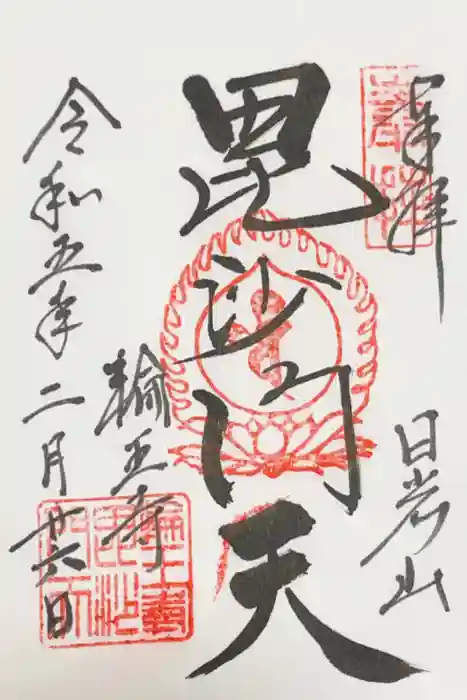 奉拝
日光山
毘沙門天
輪王寺
令和五年二月廿六日